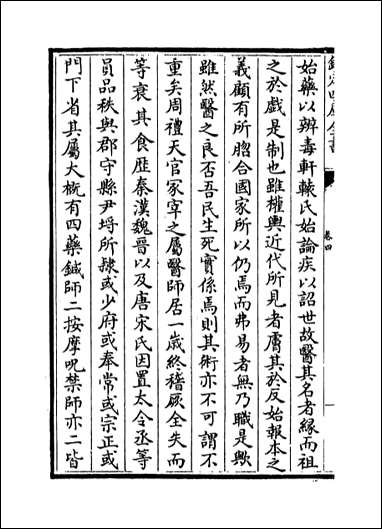 欽定四庫全書
卷四
始藥以辨毒軒轅氏始論疾以詔世故醫其名者緣而祖
之於戲是制也雖權輿近代所見者膚其於反始報本之
義顧有所脗合國家所以仍焉而弗易者無乃職是歟
雖然醫之良否吾民生死實係焉則其術亦不可謂不
重矣周禮天官冢宰之屬醫師居一歲終稽厥全失而
等衰其食歴秦漢魏晉以及唐宋氏因置太令丞等
員品秩與郡守縣尹埒所隸或少府或奉常或宗正或
門下省其屬大概有四藥鍼師二按摩呪禁師亦二皆